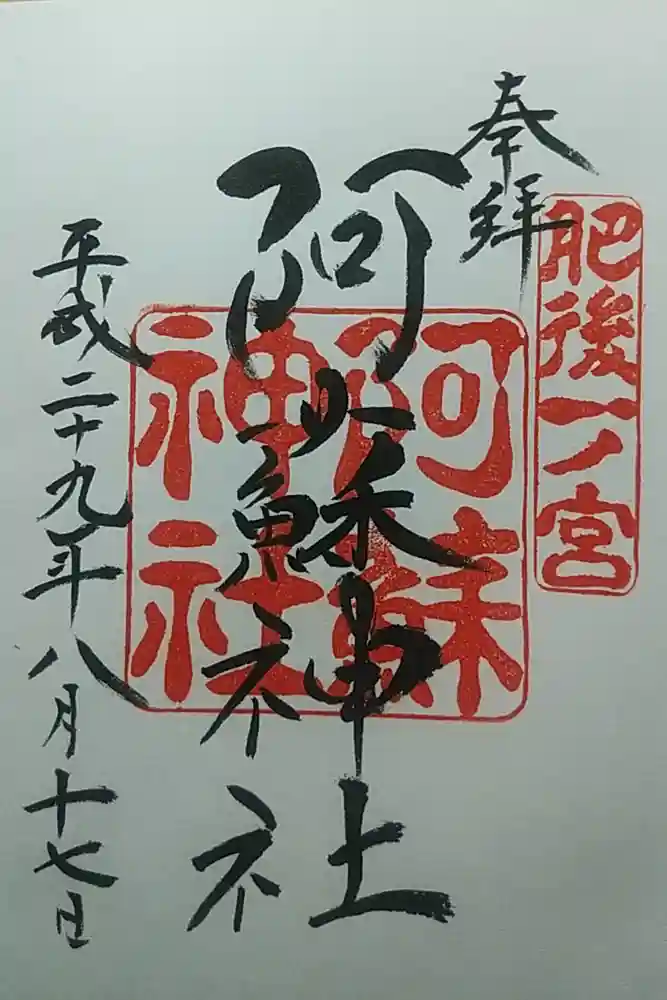 奉拝
肥後一ノ宮
阿蘇神社
阿蘇神社
平成二十九年八月十七日